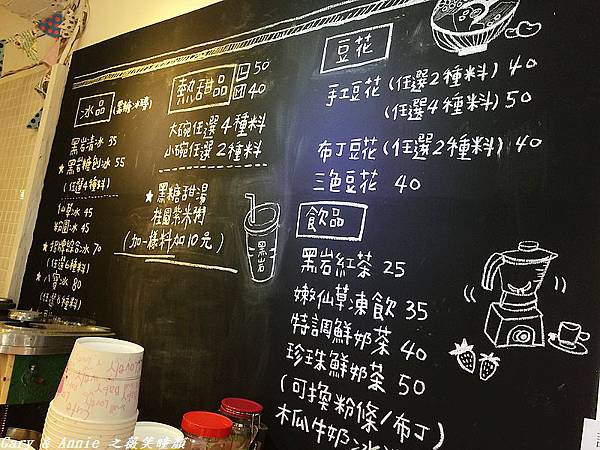 冰品 (黑糖冰磚)
黑岩清冰 35
★黑岩糖刨冰 55
(任選4種料)
仙草冰 45
粉圓冰 45
冰 70
(任選6種料)
★八寶冰 80
(任選8種料)
熱甜品 50
40
大碗任選4種料
小碗任選2種料
★黑糖甜湯
桂圓紫米粥
(加一樣料加10元)
黑岩
豆花
手工豆花(任選2種料) 40
(任選4種料) 50
布丁豆花(任選2種料) 40
三色豆花 40
飲品
黑岩紅茶 25
嫩仙草凍飲 35
特調鮮奶茶 40
珍珠鮮奶茶 50
(可換粉條/布丁)
木瓜牛奶冰
Gary & Annie 之薇笑瞳顏